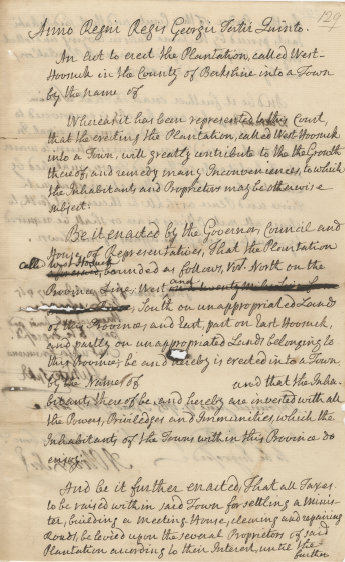 129
Anno Regni Regis Georgii Tertii Quinto.
An Act to erect the Plantation, called West-
Hoosuck in the County of Berkshire into a Town
by the name of
Whereas it has been represented to this Court,
that the erecting the Plantation, called West Hoosuck
into a Town, will greatly contribute to the the Growth
thereof, and remedy many Inconveniences, to which
the Inhabitants and Proprietors may be otherwise
subject.
Be it enacted by the Governor, Council and
House of Representatives, That the Plantation
calld West Hoosuck
bounded as follows, Vizt. North on the
Province Line; West and
South on unappropriated Lands
of this Province, and East, part on East Hoosuck,
and partly on unappropriated Lands belonging to
this Province, be and hereby is erected into a Town
by the Name of and that the Inha-
bitants thereof be, and hereby are invested with all
the Powers, Priviledges and Immunities, which the
Inhabitants of the Towns within this Province do
enjoy.
And be it further enacted, That all Taxes
to be raised with in said Town for settling a Minis-
ter, building a Meeting House, clearing and repairing
Roads, be levied upon the several Proprietors of said
Plantation according to their Interest, until the
further